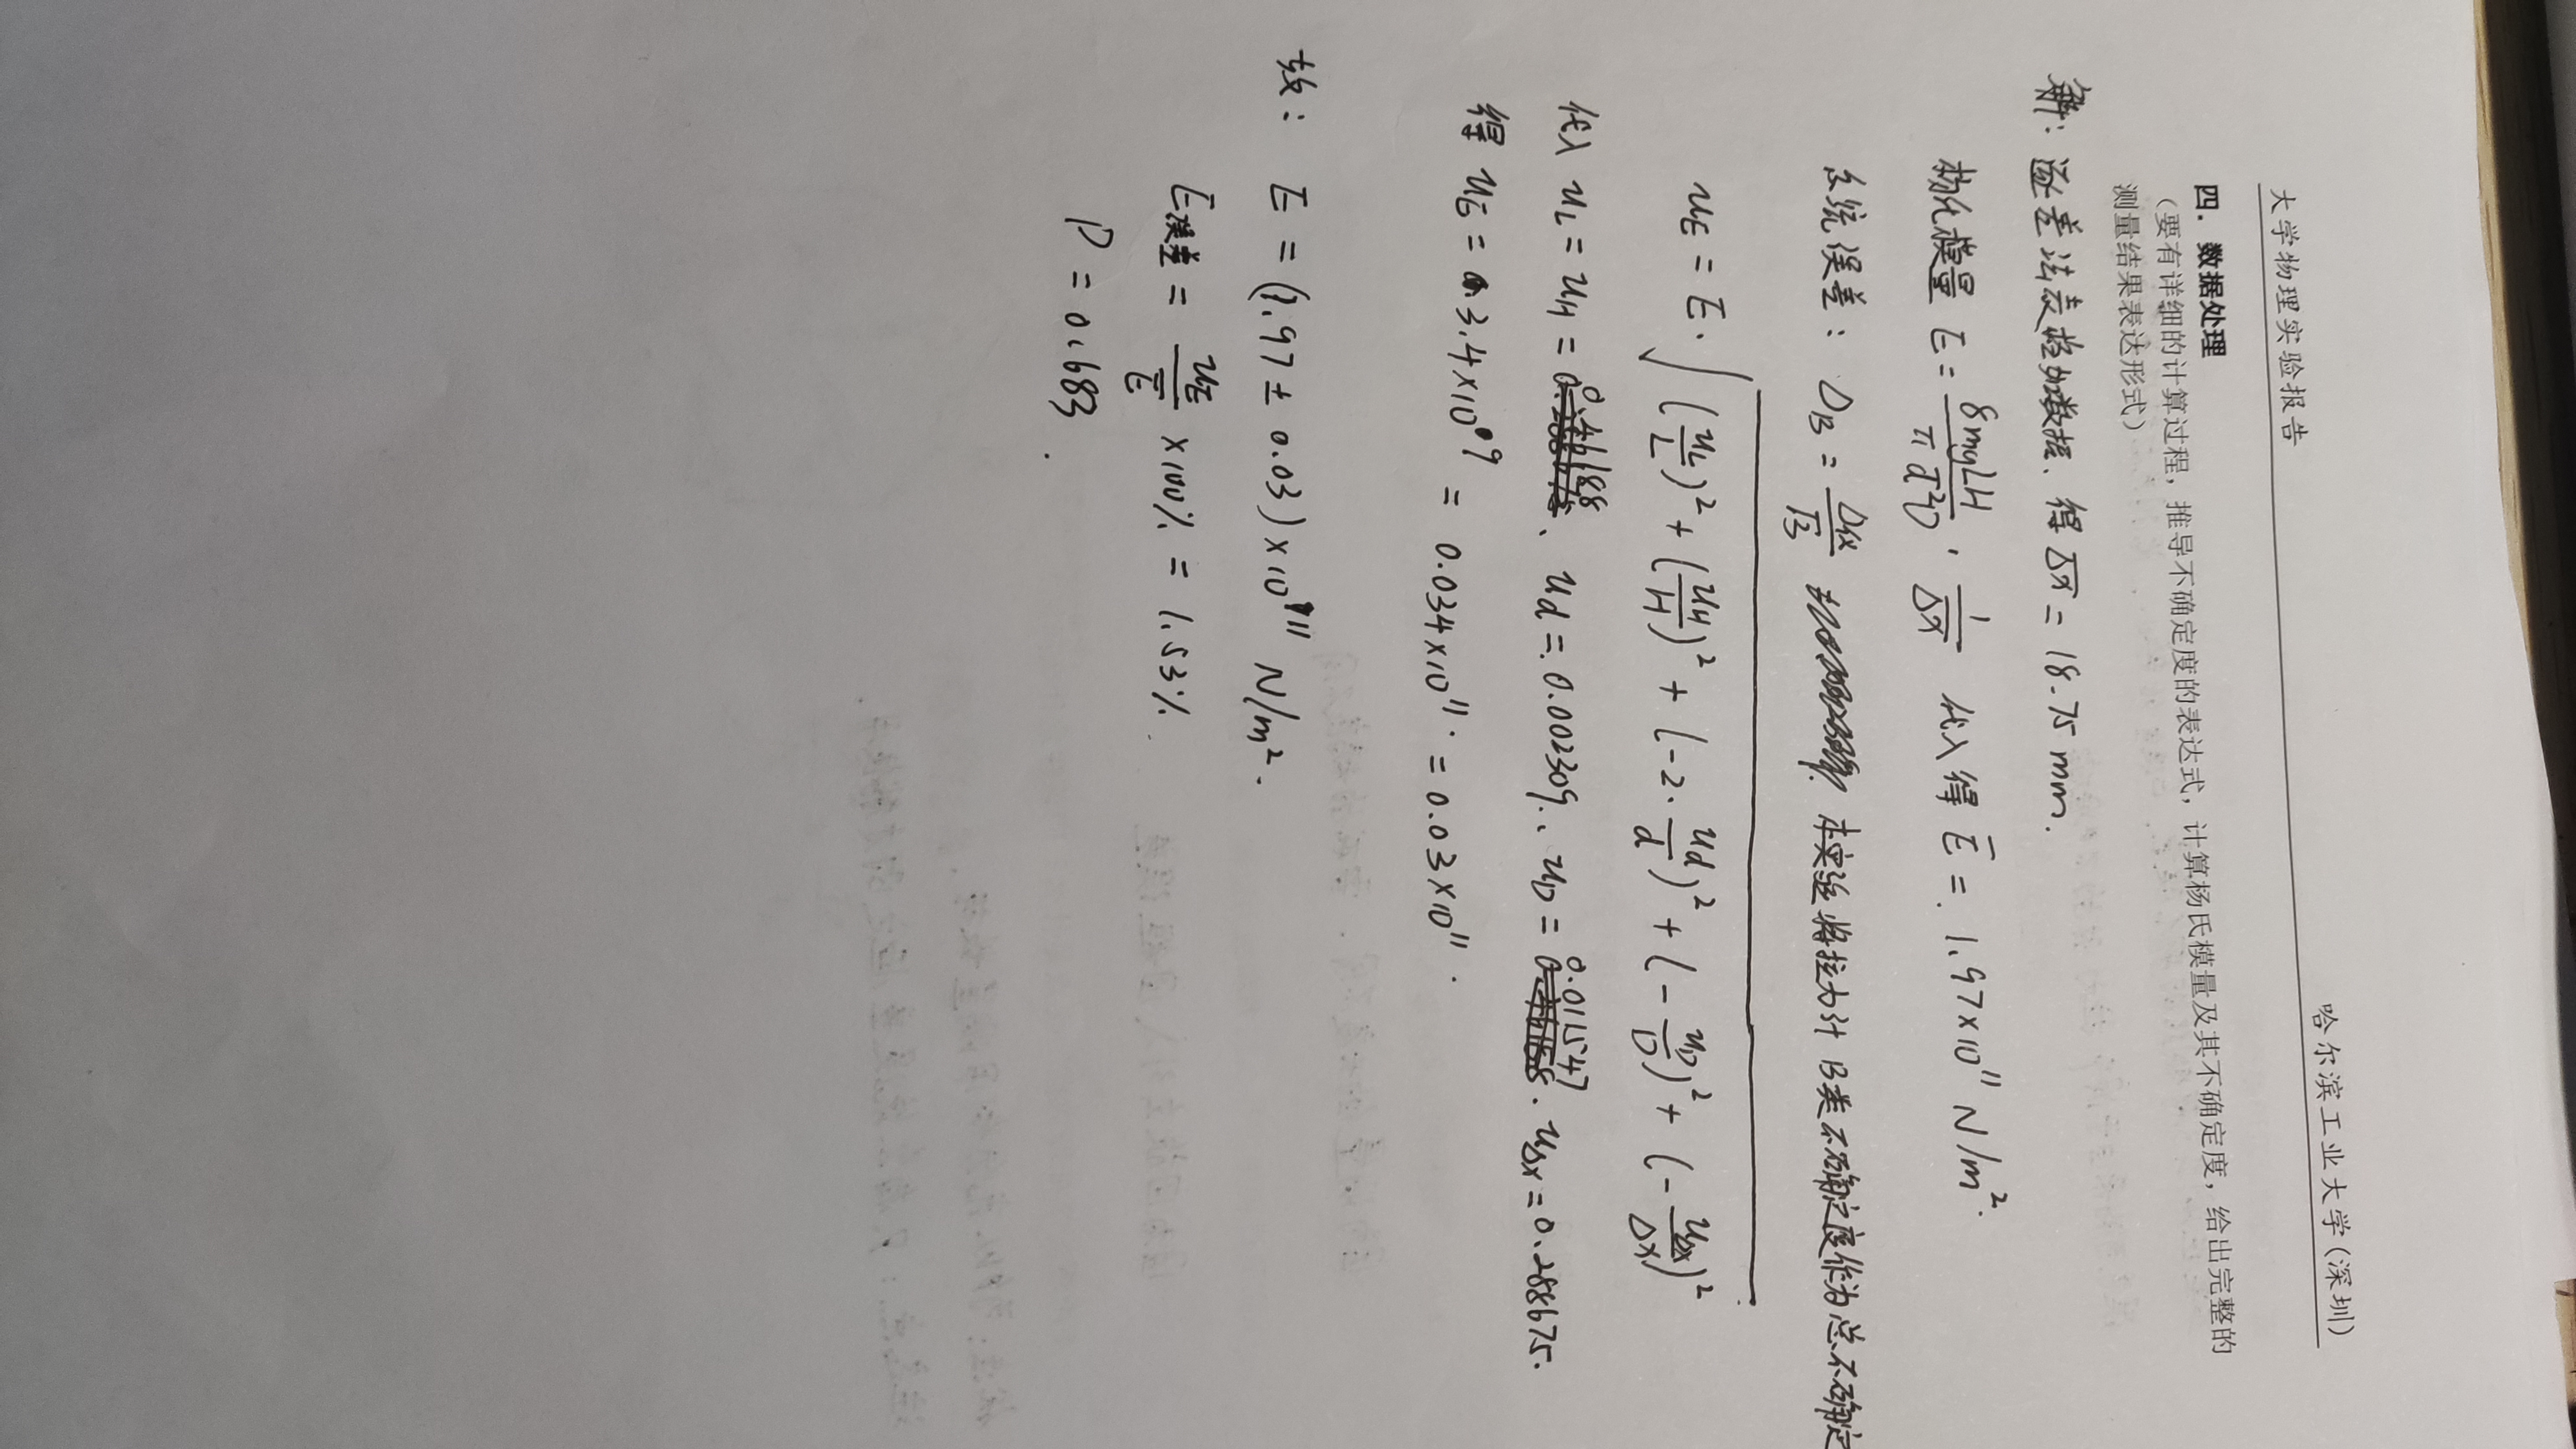 大学物理实验报告 哈尔滨工业大学(深圳)
四. 数据处理
(要有详细的计算过程, 推导不确定度的表达式, 计算杨氏模量及其不确定度, 给出完整的
测量结果表达形式)
解: 逐差法表格处数据. 得 Δx̄ = 18.75 mm.
杨氏模量 E = 8mgLH/πd²D · 1/Δx 代入得 Ē = 1.97×10¹¹ N/m².
系统误差: Δ_B = Δ仪/√3 本实验将拉力计B类不确定度作为总不确定
u_E = E·√((u_L/L)² + (u_H/H)² + (-2·u_d/d)² + (-u_D/D)² + (-u_Δx/Δx)²)
代入 u_L = u_H = 0.46188、u_d = 0.002309、u_D = 0.011547. u_Δx = 0.288675.
得 u_E = 3.4×10⁹ = 0.034×10¹¹. = 0.03×10¹¹.
故: E = (1.97 ± 0.03)×10¹¹ N/m².
E误差 = u_E/Ē ×100% = 1.53%.
P = 0.683.